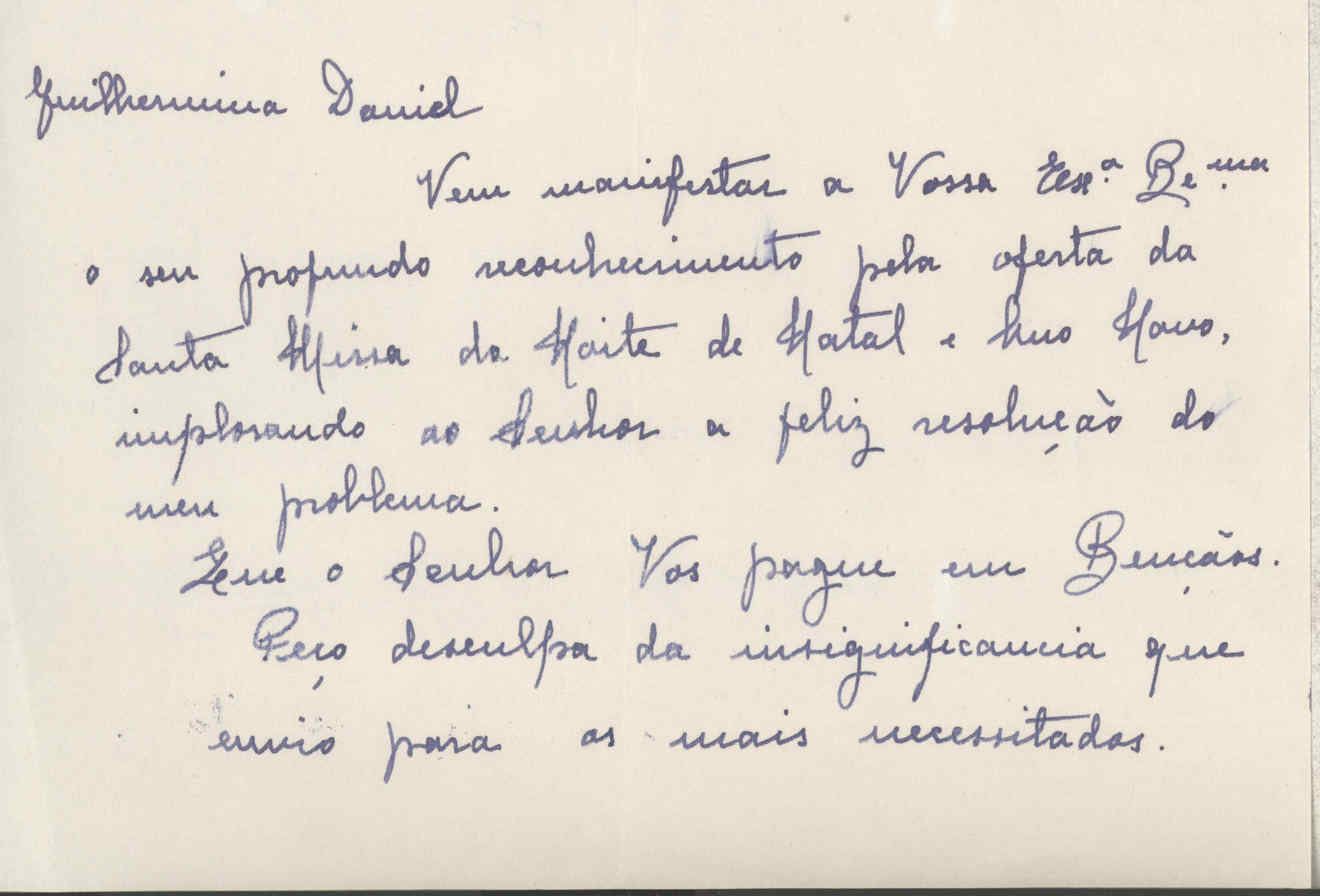 Guilhermina Daniel
Vem manifestar a Vossa Exª Revma
o seu profundo reconhecimento pela oferta da
Santa Missa da Noite de Natal e Ano Novo,
implorando ao Senhor a feliz resolução do
meu problema.
Que o Senhor Vos pague em Bençãos.
Peço desculpa da insignificancia que
envio para os mais necessitados.